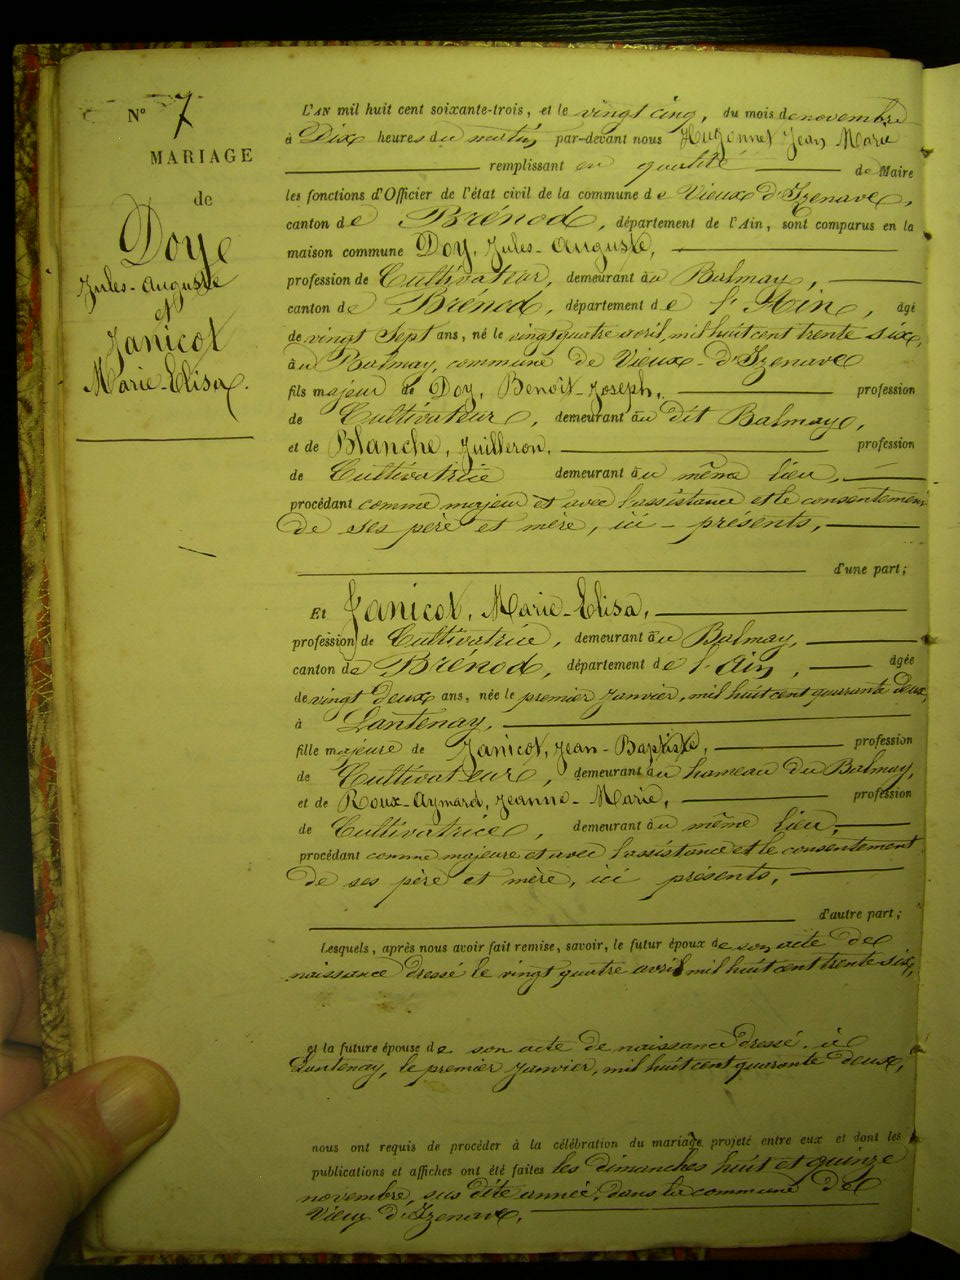 N° 7
MARIAGE
de
Doye
Jules-Auguste
et
Janicot
Marie-Elisa.
L'AN mil huit cent soixante-trois, et le vingt cinq, du mois de novembre
à Dix heures du matin, par-devant nous Hugonnet Jean Marie
remplissant en qualité de Maire
les fonctions d'Officier de l'état civil de la commune de Vieux d'Izenave,
canton de Brénod, département de l'Ain, sont comparus en la
maison commune Doy, Jules-Auguste,
profession de Cultivateur, demeurant au Balmay,
canton de Brénod, département de l'Ain, âgé
de vingt Sept ans, né le vingt quatre avril, mil huit cent trente six,
au Balmay, commune de Vieux-d'Izenave
fils majeur de Doy, Benoît-Joseph, profession
de Cultivateur, demeurant au dit Balmay,
et de Blanche, Juilleron, profession
de Cultivatrice demeurant au même lieu,
procédant comme majeur et avec l'assistance et le consentement
de ses père et mère, ici-présents,
d'une part;
Et Janicot, Marie-Elisa,
profession de Cultivatrice, demeurant au Balmay,
canton de Brénod, département de l'Ain, âgée
de vingt deux ans, née le premier Janvier, mil huit cent quarante deux,
à Lantenay,
fille majeure de Janicot, Jean-Baptiste, profession
de Cultivateur, demeurant au hameau du Balmay,
et de Roux-Aymard, Jeanne-Marie, profession
de Cultivatrice, demeurant au même lieu,
procédant comme majeure et avec l'assistance et le consentement
de ses père et mère, ici présents,
d'autre part;
Lesquels, après nous avoir fait remise, savoir, le futur époux de son acte de
naissance dressé le vingt quatre avril mil huit cent trente six,
et la future épouse de son acte de naissance dressé, à
Lantenay, le premier Janvier, mil huit cent quarante deux,
nous ont requis de procéder à la célébration du mariage projeté entre eux et dont les
publications et affiches ont été faites les dimanches huit et quinze
novembre, sus dite année, dans la commune de
Vieux d'Izenave,